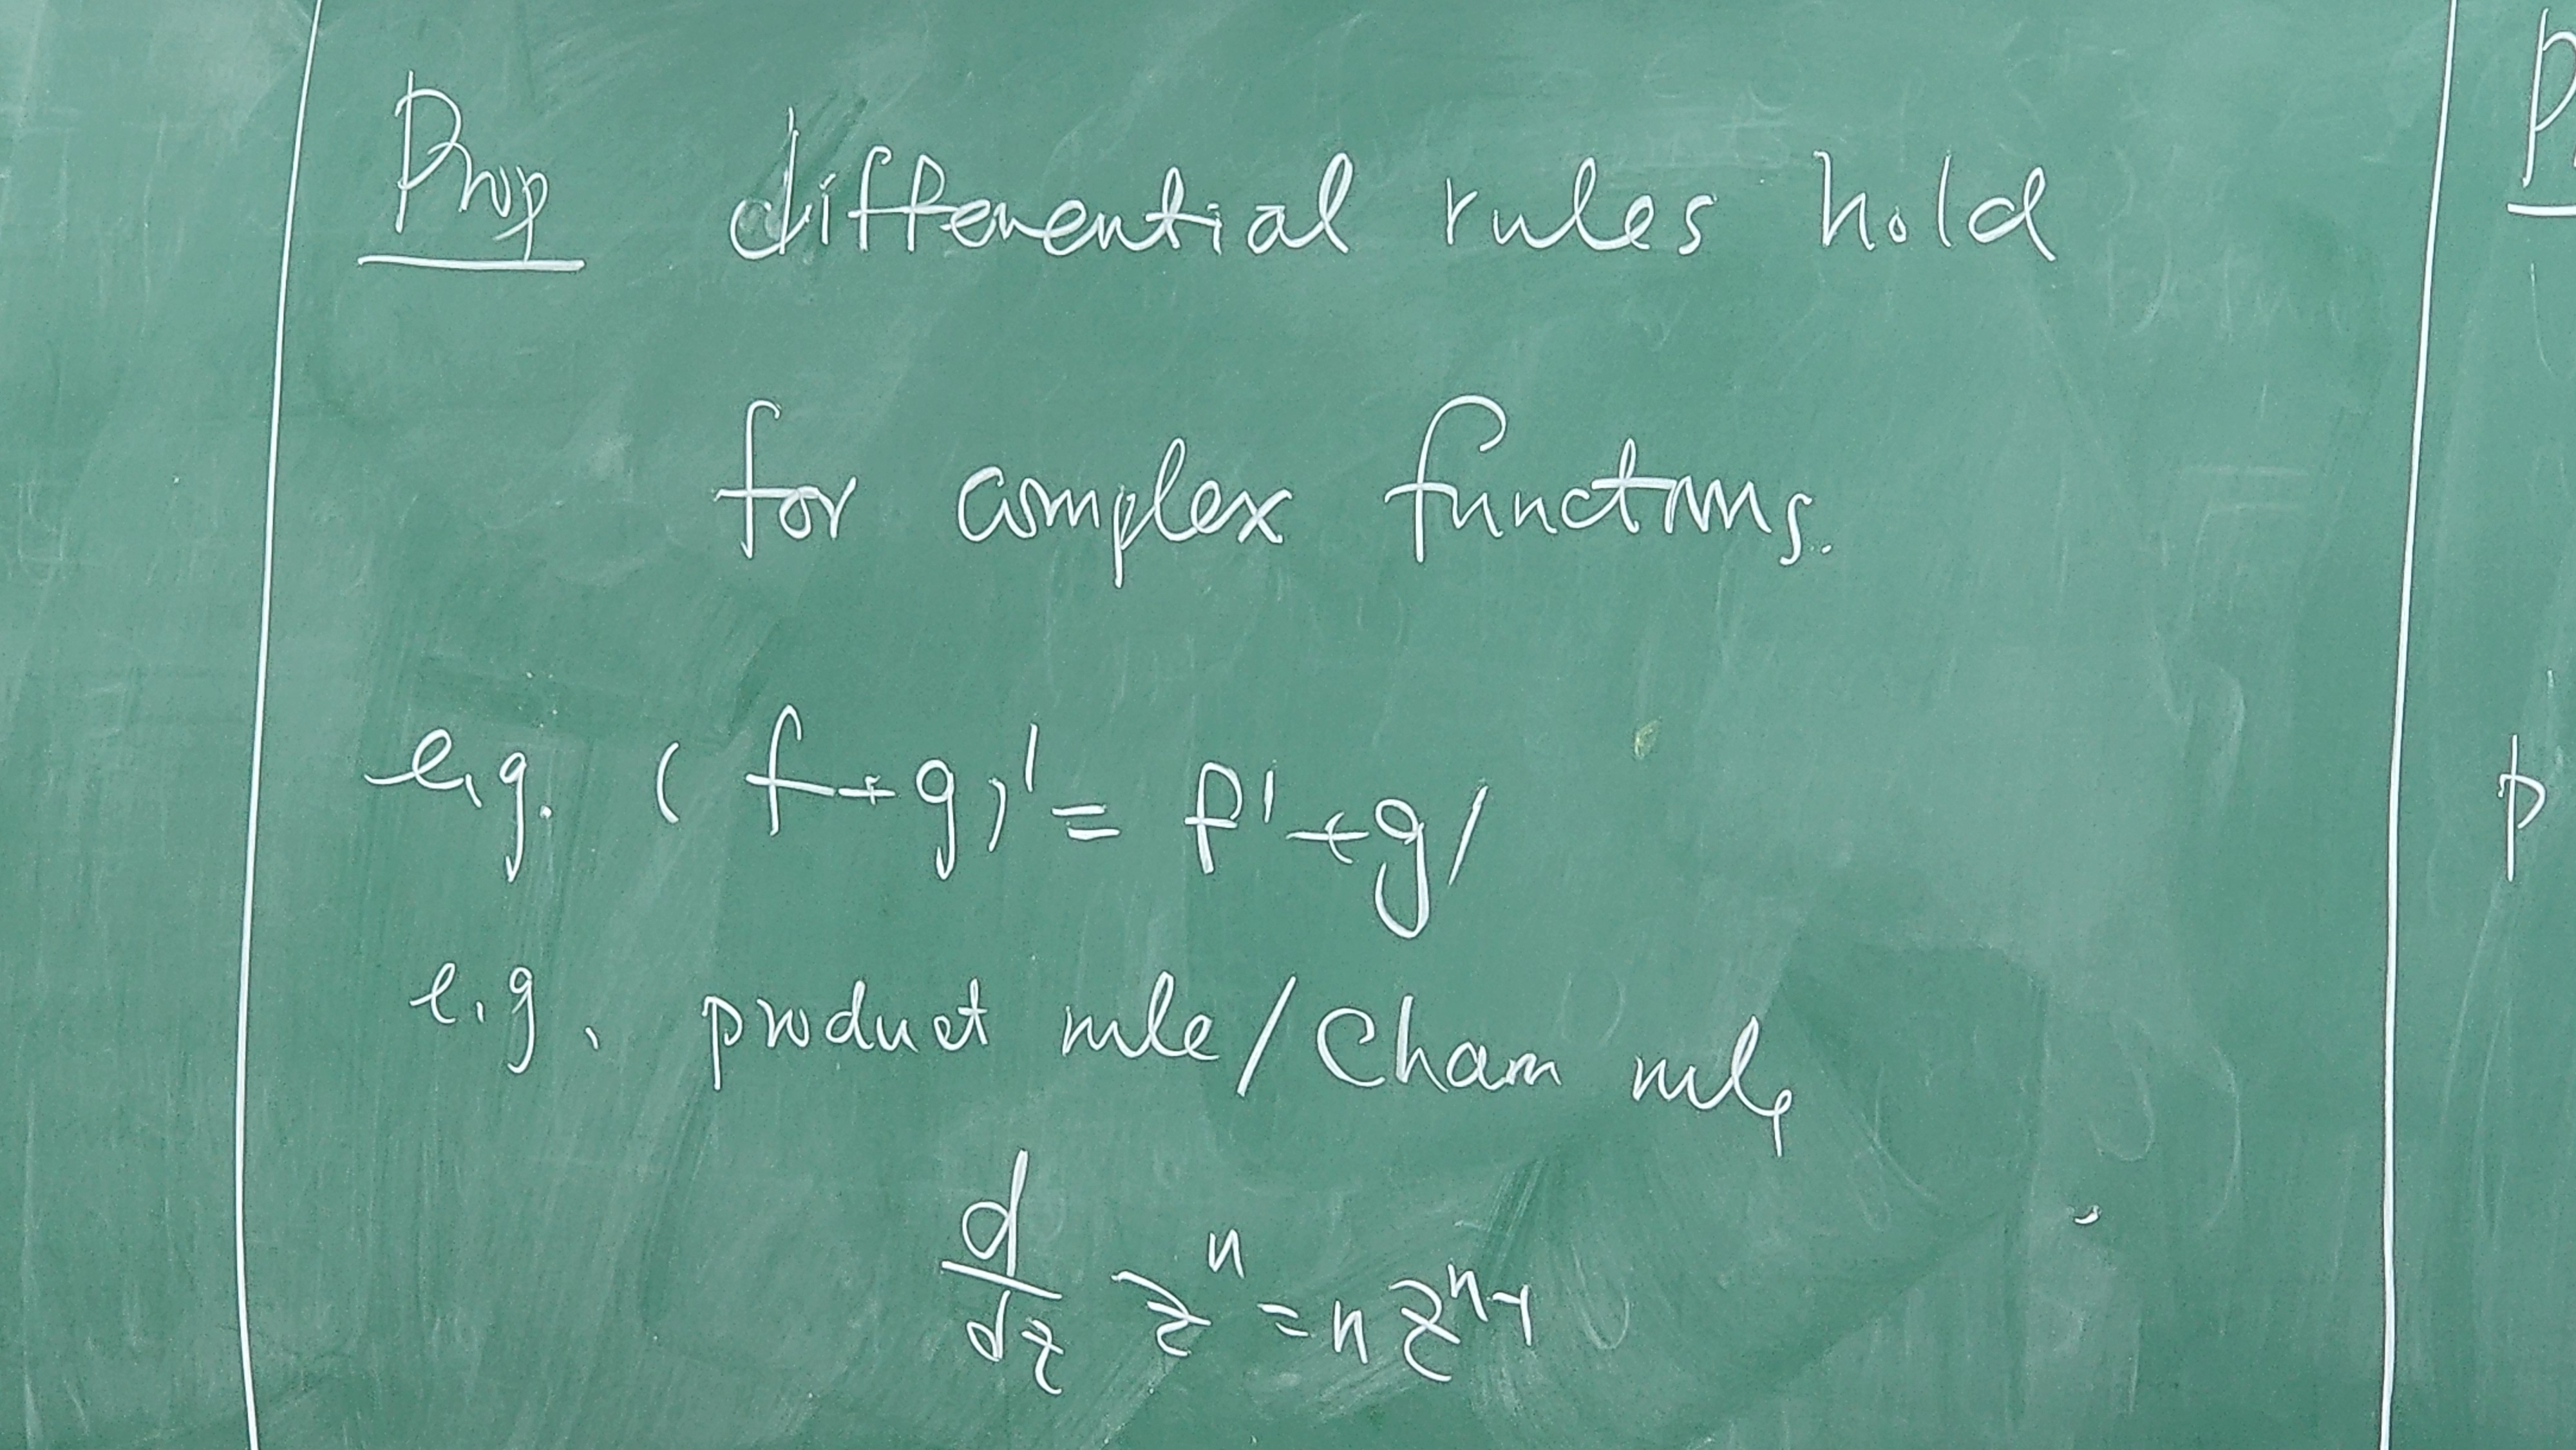 Prop differential rules hold
for complex functions.
e.g. (f+g)' = f'+g'
e.g. product rule/Chain rule
d/dz z^n = n z^{n-1}
P
p